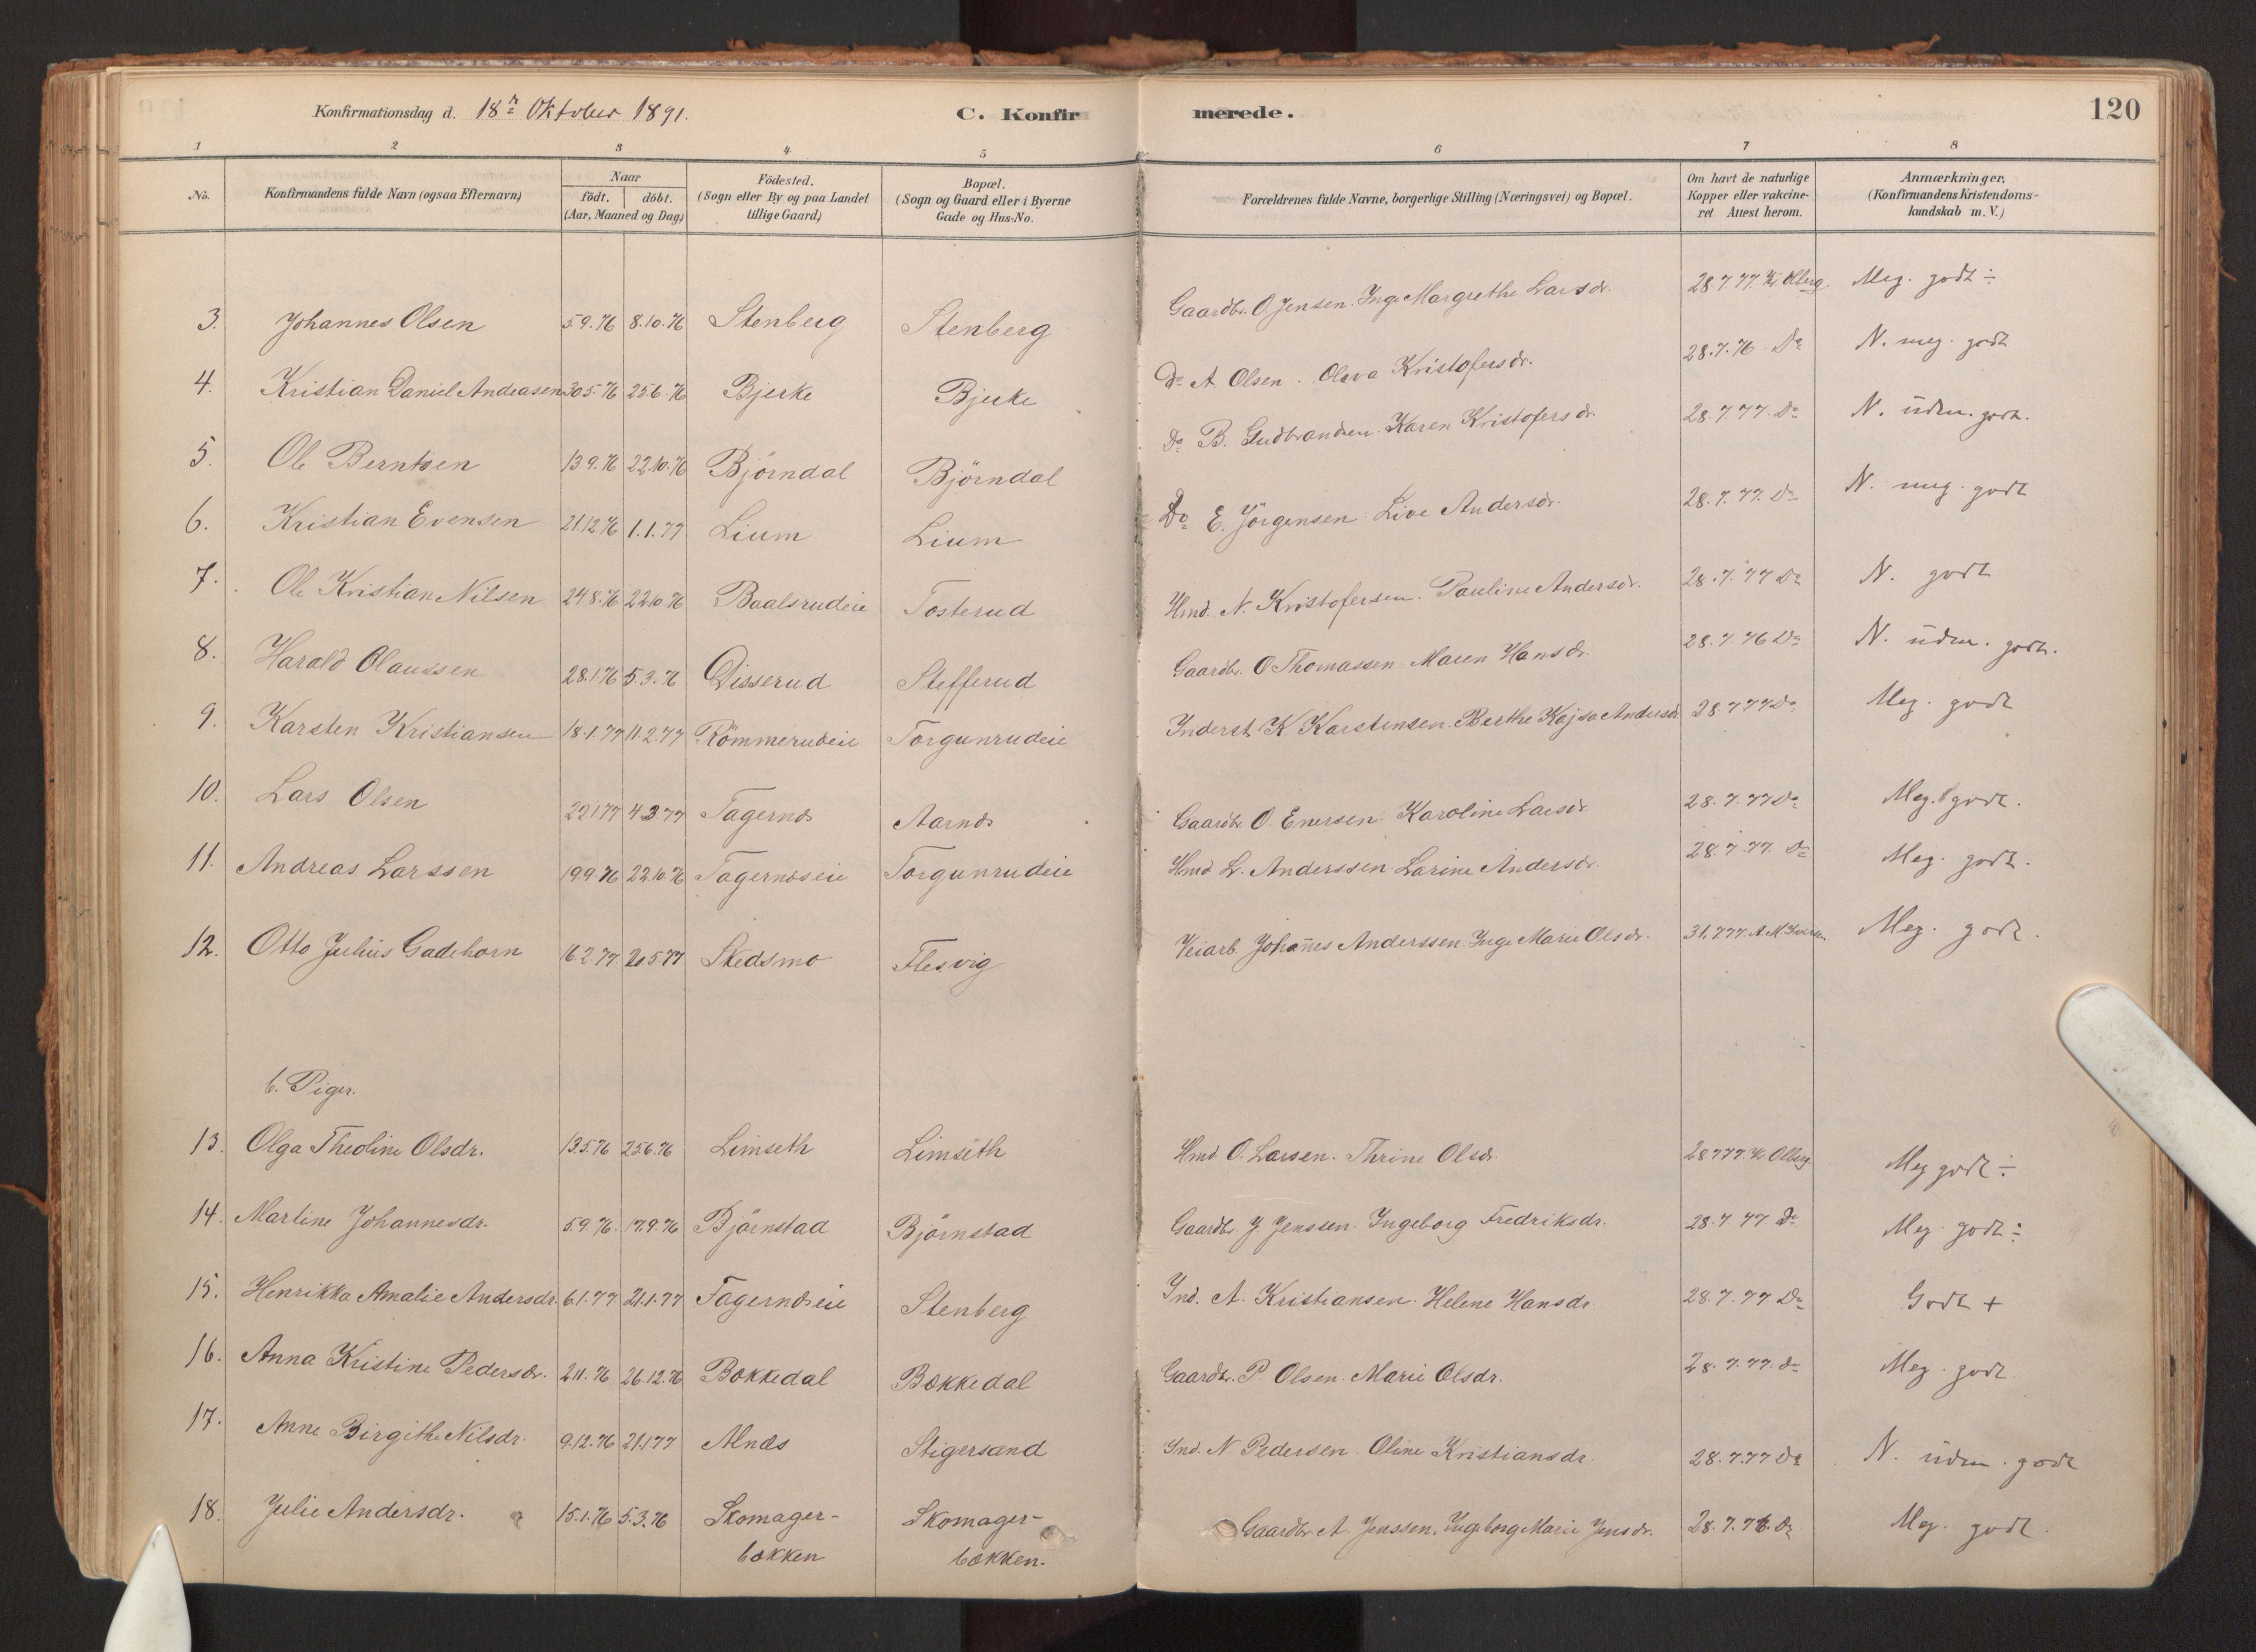 Konfirmationsdag d. 18de Oktober 1891.
C. Konfirmerede.
120
1 2 3 4 5 6 7 8
No. Konfirmandens fulde Navn (ogsaa Efternavn) Naar födt. döbt. (Aar, Maaned og Dag) Födested. (Sogn eller By og paa Landet tillige Gaard) Bopæl. (Sogn og Gaard eller i Byerne Gade og Hus-No. Forældrenes fulde Navne, borgerlige Stilling (Næringsvei) og Bopæl. Om havt de naturlige Kopper eller vakcineret Attest herom. Anmærkninger, (Konfirmandens Kristendomskundskab m. V.)
3. Johannes Olsen 5.9.76 8.10.76 Stenberg Stenberg Gaardbr. O. Jensen. Inge Margrethe Larsdr. 28.7.77 Olberg. Meg. godt ÷
4. Kristian Daniel Andreasen 30.5.76 25.6.76 Bjerke Bjerke Do A Olsen. Oleva Kristofersdr. 28.7.76 Do N. meg. godt
5. Ole Berntsen 13.9.76 22.10.76 Björndal Björndal Do B. Gudbrandsen. Karen Kristofersdr. 28.7.77. Do N. udm. godt.
6. Kristian Evensen 21.12.76 1.1.77 Lium Lium Do E. Jörgensen Live Andersdr. 28.7.77. Do N. meg. godt
7. Ole Kristian Nilsen 24.8.76 22.10.76 Baalsrudeie Tosterud Hmd. N. Kristofersen. Pauline Andersdr. 28.7.77 Do N. godt
8. Harald Olaussen 28.1.76 5.3.76 Disserud Stefferud Gaardbr. O Thomassen. Maren Hansdr. 28.7.76 Do N. udm. godt.
9. Karsten Kristiansen 18.1.77 11.2.77 Römmerudeie Torgunrudeie Inderst K Karstensen. Berthe Kajsa Andersdr. 28.7.77 Do Meg. godt
10. Lars Olsen 22.1.77 4.3.77 Fagernæs Aarnæs Gaardbr. O. Enersen. Karoline Larsdr. 28.7.77 Do Meg. godt.
11. Andreas Larssen 19.9.76 22.10.76 Fagernæseie Torgunrudeie Hmd L. Anderssen. Larine Andersdr. 28.7.77. Do Meg. godt.
12. Otto Julius Gadehorn 16.2.77 20.5.77 Skedsmo Flesvig Veiarb. Johannes Anderssen. Inge Marie Olsdr. 31.7.77. A. M. Iversen Meg. godt.
b. Piger.
13. Olga Theoline Olsdr. 13.5.76 25.6.76 Limseth Limseth Hmd O. Larsen. Thrine Olsdr. 28.7.77. Olberg. Meg godt ÷
14. Martine Johannesdr. 5.9.76. 17.9.76 Björnstad Björnstad Gaardbr. J Jenssen. Ingeborg Fredriksdr. 28.7.77 Do Meg. godt ÷
15. Henrikka Amalie Andersdr. 6.1.77 21.1.77 Fagernæseie Stenberg Ind. A. Kristiansen. Helene Hansdr. 28.7.77 Do Godt +
16. Anna Kristine Pedersdr. 2.11.76 26.12.76 Bækkedal Bækkedal Gaardbr. P. Olsen. Marie Olsdr. 28.7.77. do Meg. godt.
17. Anne Birgithe Nilsdr. 9.12.76 21.1.77 Alnæs Stigersand Ind. N. Pedersen. Oline Kristiansdr. 28.7.77 Do N. udm. godt
18. Julie Andersdr. 15.1.76 5.3.76 Skomager- Skomager- Gaardbr. A. Jenssen. Ingeborg Marie Jensdr. 28.7.76. Do Meg. godt.
bækken bækken.